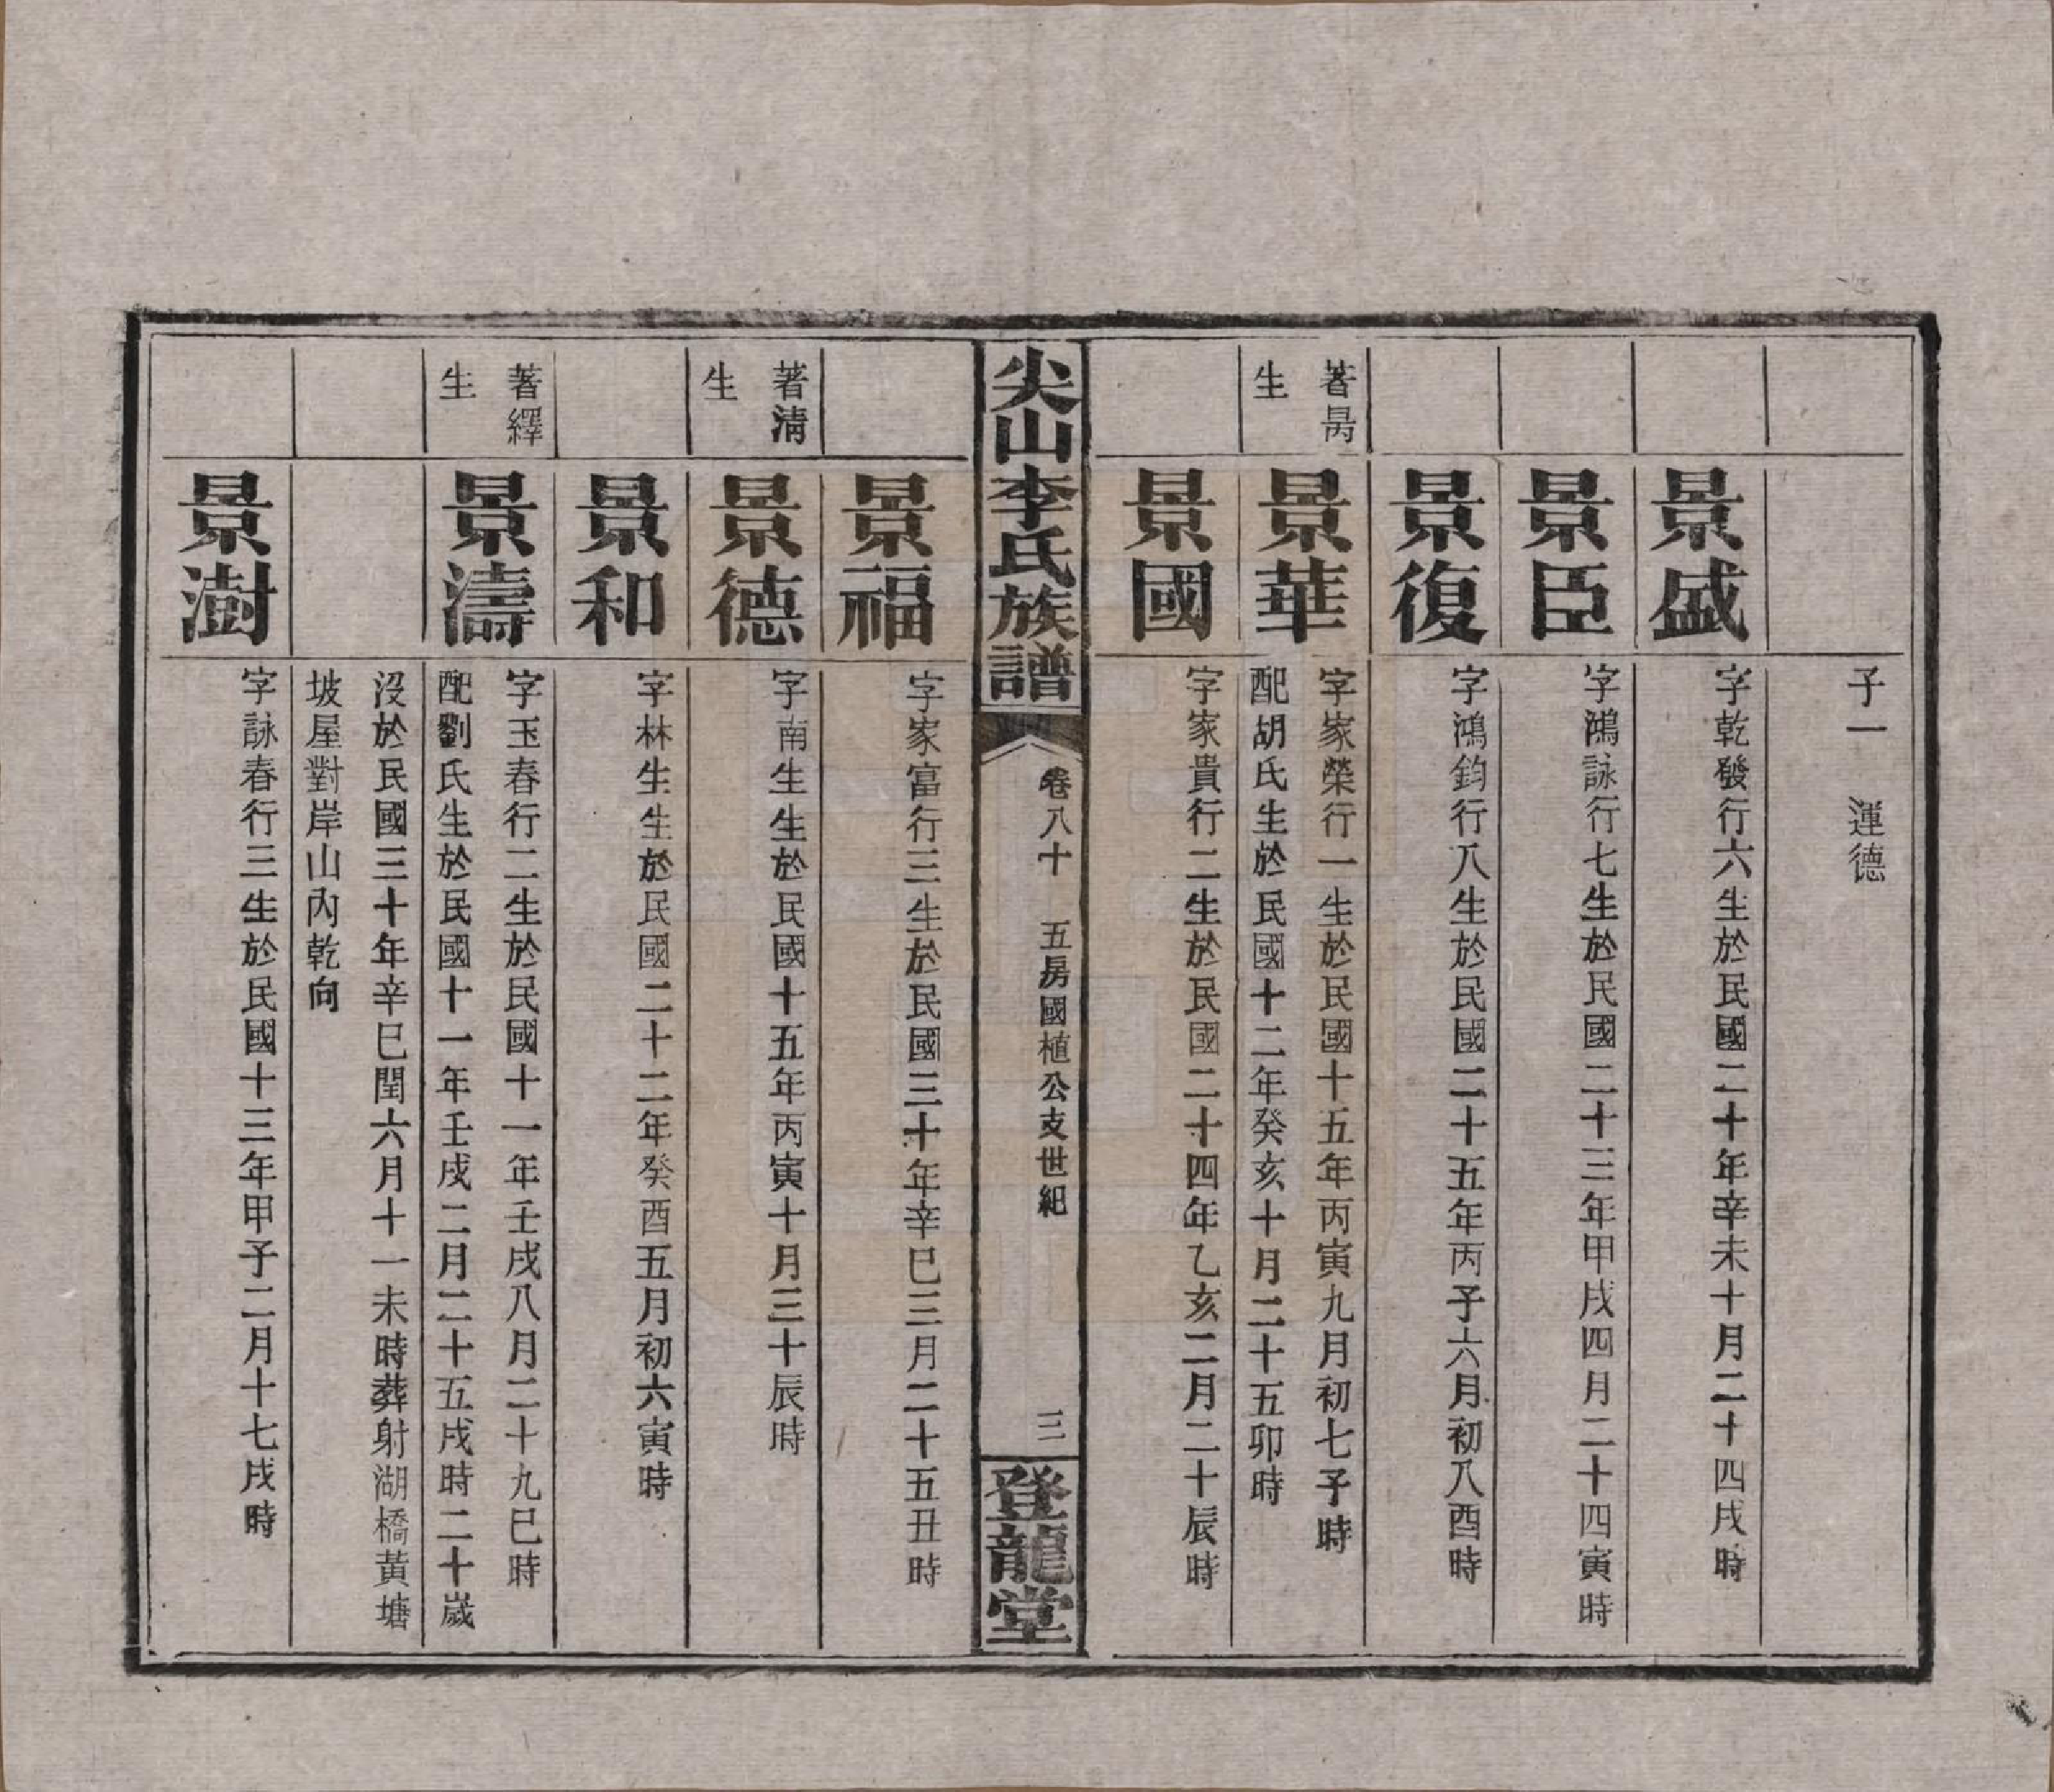 子一　運德
景盛
字乾發行六生於民國二十年辛未十月二十四戌時
景臣
字鴻詠行七生於民國二十三年甲戌四月二十四寅時
景復
字鴻鈞行八生於民國二十五年丙子六月初八酉時
著昺
生
景華
字家榮行一生於民國十五年丙寅九月初七子時
配胡氏生於民國十二年癸亥十月二十五卯時
景國
字家貴行二生於民國二十四年乙亥二月二十辰時
尖山李氏族譜
卷八十　五房國植公支世紀
三
登龍堂
景福
字家富行三生於民國三十年辛巳三月二十五丑時
著清
生
景德
字南生生於民國十五年丙寅十月三十辰時
景和
字林生生於民國二十二年癸酉五月初六寅時
著繹
生
景濤
字玉春行二生於民國十一年壬戌八月二十九巳時
配劉氏生於民國十一年壬戌二月二十五戌時二十歲
沒於民國三十年辛巳閏六月十一未時葬射湖橋黃塘
坡屋對岸山內乾向
景澍
字詠春行三生於民國十三年甲子二月十七戌時